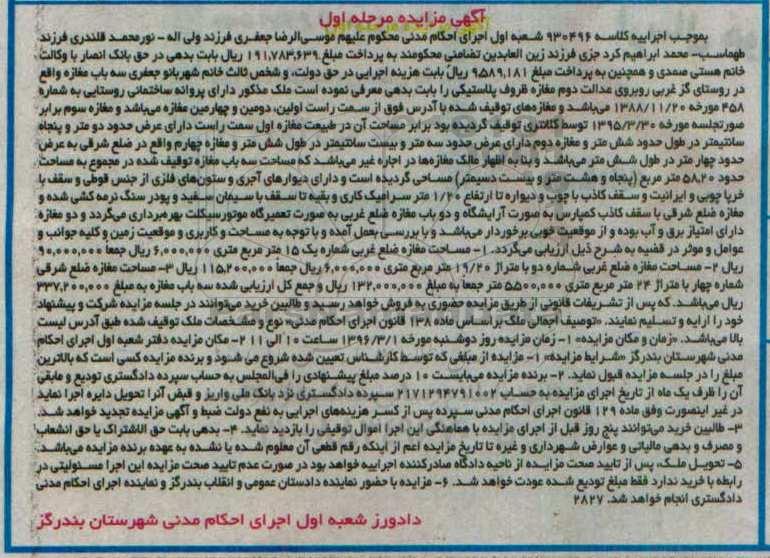 آگهی مزایده مرحله اول
بموجب اجراییه کلاسه ۹۳۰۴۹۶ شعبه اول اجرای احکام مدنی محکوم علیهم موسی‌الرضا جعفری فرزند ولی اله - نورمحمد قلندری فرزند
طهماسب- محمد ابراهیم کرد جزی فرزند زین العابدین تضامنی محکومند به پرداخت مبلغ ۱۹۱,۷۸۳,۶۳۹ ریال بابت بدهی در حق بانک انصار با وکالت
خانم هستی صمدی و همچنین به پرداخت مبلغ ۹۵۸۹,۱۸۱ ریال بابت هزینه اجرایی در حق دولت، و شخص ثالث خانم شهربانو جعفری سه باب مغازه واقع
در روستای گز غربی روبروی عدالت دوم مغازه ظروف پلاستیکی را بابت بدهی معرفی نموده است ملک مذکور دارای پروانه ساختمانی روستایی به شماره
۴۵۸ مورخه ۱۳۸۸/۱۱/۲۰ می‌باشد و مغازه‌های توقیف شده با آدرس فوق از سمت راست اولین، دومین و چهارمین مغازه می‌باشد و مغازه سوم برابر
صورتجلسه مورخه ۱۳۹۵/۳/۳۰ توسط کلانتری توقیف گردیده بود برابر مساحت آن در طبیعت مغازه اول سمت راست دارای عرض حدود دو متر و پنجاه
سانتیمتر در طول حدود شش متر و مغازه دوم دارای عرض حدود سه متر و بیست سانتیمتر در طول شش متر و مغازه چهارم واقع در ضلع شرقی به عرض
حدود چهار متر در طول شش متر می‌باشد و بنا به اظهار مالک مغازه‌ها در اجاره غیر می‌باشد که مساحت سه باب مغازه توقیف شده در مجموع به مساحت
۵۸,۲۰ متر مربع (پنجاه و هشت متر و بیست دسیمتر) مساحی گردیده است و دارای دیوارهای آجری و ستون‌های فلزی از جنس قوطی و سقف با
خرپا چوبی و ایرانیت و سقف کاذب با چوب و دیواره تا ارتفاع ۱/۲۰ متر سرامیک کاری و بقیه تا سقف با سیمان سفید و پودر سنگ نرمه کشی شده و
مغازه ضلع شرقی با سقف کاذب کمپارس به صورت آرایشگاه و دو باب مغازه ضلع غربی به صورت تعمیرگاه موتورسیکلت بهره‌برداری می‌گردد و دو مغازه
دارای امتیاز برق و آب بوده و از موقعیت خوبی برخوردار می‌باشد و با بررسی بعمل آمده و با توجه به مساحت و کاربری و موقعیت زمین و کلیه جوانب و
عوامل و موثر در قضیه به شرح ذیل ارزیابی می‌گردد. ۱- مساحت مغازه ضلع غربی شماره یک ۱۵ متر مربع متری ۶,۰۰۰,۰۰۰ ریال جمعا ۹۰,۰۰۰,۰۰۰
ریال ۲- مساحت مغازه ضلع غربی شماره دو با متراژ ۱۹/۲۰ متر مربع متری ۶,۰۰۰,۰۰۰ ریال جمعا ۱۱۵,۲۰۰,۰۰۰ ریال ۳- مساحت مغازه ضلع شرقی
شماره چهار با متراژ ۲۴ متر مربع متری ۵۵۰۰,۰۰۰ متر جمعا به مبلغ ۱۳۲,۰۰۰,۰۰۰ ریال و جمع کل ارزیابی شده سه باب مغازه به مبلغ ۳۳۷,۲۰۰,۰۰۰
ریال می‌باشد. که پس از تشریفات قانونی از طریق مزایده حضوری به فروش خواهد رسید و طالبین خرید می‌توانند در جلسه مزایده شرکت و پیشنهاد
خود را ارایه و تسلیم نمایند. «توصیف اجمالی ملک بر اساس ماده ۱۳۸ قانون اجرای احکام مدنی» نوع و مشخصات ملک توقیف شده طبق آدرس لیست
بالا می‌باشد. «زمان و مکان مزایده» ۱- زمان مزایده روز دوشنبه مورخه ۱۳۹۶/۳/۱ ساعت ۱۰ الی ۱۱ ۲- مکان مزایده دفتر شعبه اول اجرای احکام
مدنی شهرستان بندرگز «شرایط مزایده» ۱- مزایده از مبلغی که توسط کارشناس تعیین شده شروع می شود و برنده مزایده کسی است که بالاترین
مبلغ را در جلسه مزایده قبول نماید. ۲- برنده مزایده می‌بایست ۱۰ درصد مبلغ پیشنهادی را فی‌المجلس به حساب سپرده دادگستری تودیع و مابقی
آن را ظرف یک ماه از تاریخ اجرای مزایده به حساب ۲۱۷۱۲۹۴۷۹۱۰۰۲ سپرده دادگستری نزد بانک ملی واریز و قبض آنرا تحویل دایره اجرا نماید
در غیر اینصورت وفق ماده ۱۲۹ قانون اجرای احکام مدنی سپرده پس از کسر هزینه‌های اجرایی به نفع دولت ضبط و آگهی مزایده تجدید خواهد شد.
۳- طالبین خرید می‌توانند پنج روز قبل از اجرای مزایده با هماهنگی این اجرا اموال توقیفی را بازدید نماید. ۴- بدهی بابت حق الاشتراک یا حق انشعاب
و مصرف و بدهی مالیاتی و عوارض شهرداری و غیره تا تاریخ مزایده اعم از اینکه رقم قطعی آن معلوم شده یا نشده به عهده برنده مزایده می‌باشد.
۵- تحویل ملک، پس از تایید صحت مزایده از ناحیه دادگاه صادرکننده اجراییه خواهد بود در صورت عدم تایید صحت مزایده این اجرا مسئولیتی در
رابطه با خرید ندارد فقط مبلغ تودیع شده عودت خواهد شد. ۶- مزایده با حضور نماینده دادستان عمومی و انقلاب بندرگز و نماینده اجرای احکام مدنی
دادگستری انجام خواهد شد. ۲۸۲۷
دادورز شعبه اول اجرای احکام مدنی شهرستان بندرگز